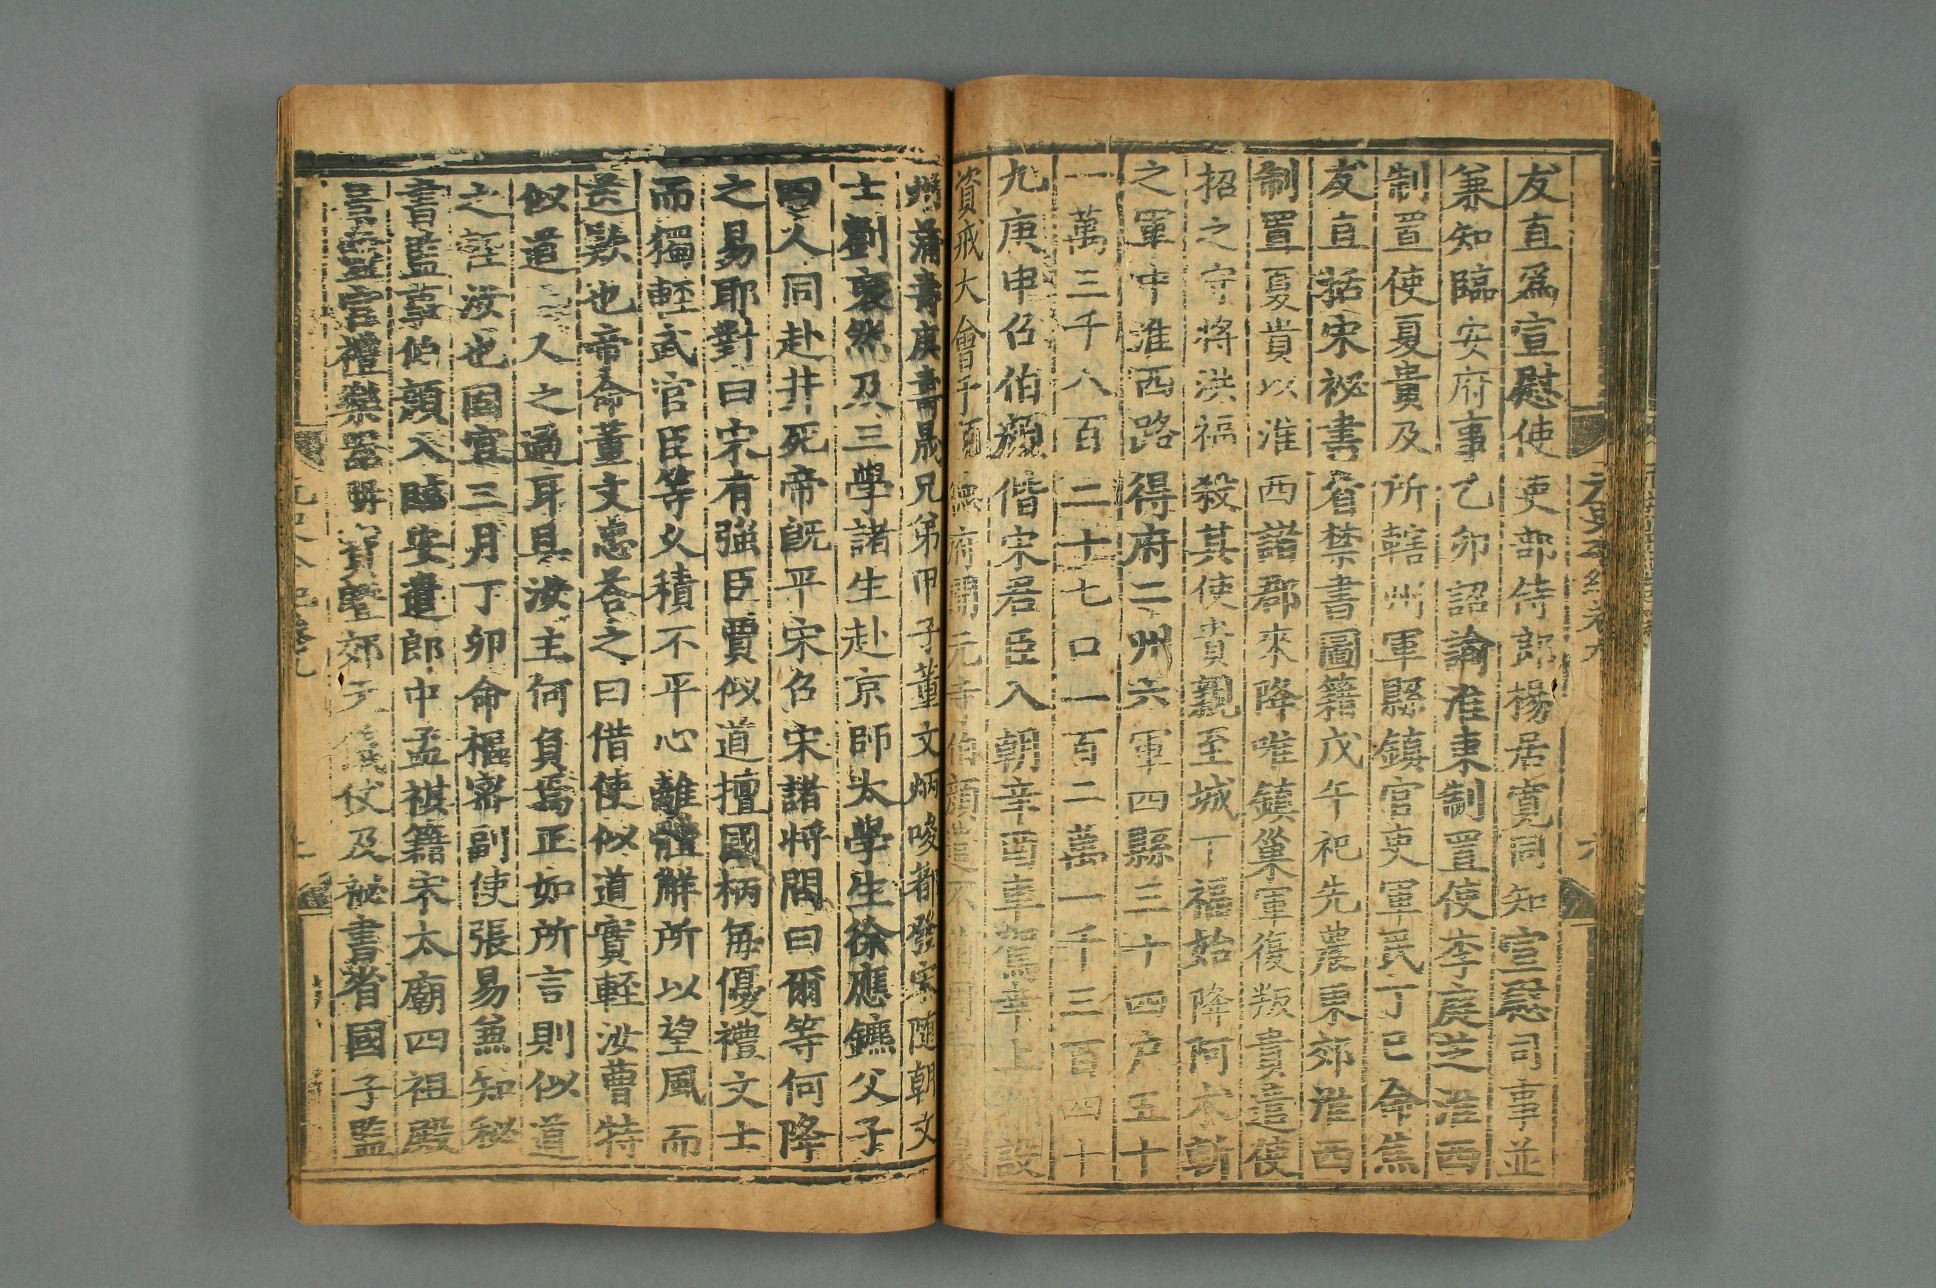 友直爲宣慰使吏部侍郎楊居寬同知宣慰司事並
兼知臨安府事乙卯詔諭淮東制置使李庭芝淮西
制置使夏貴及所轄州軍縣鎮官吏軍民丁巳命焦
友直括宋祕書省禁書圖籍戊午祀先農東郊淮西
制置夏貴以淮西諸郡來降唯鎮巢軍復叛貴遣使
招之守將洪福殺其使貴親至城下福始降阿术斬
之軍中淮西路得府二州六軍四縣三十四户五十
一萬三千八百二十七口一百二萬一千三百四十
九庚申召伯顏偕宋君臣入朝辛酉車駕幸上都設
資戒大會于順德府開元寺伯顏
蒲壽庚壽晟兄弟甲子董文炳唆都發宋隨朝文
士劉褎然及三學諸生赴京師太學生徐應鑣父子
四人同赴井死帝旣平宋召宋諸將問曰爾等何降
之易耶對曰宋有強臣賈似道擅國柄每優禮文士
而獨輕武官臣等乆積不平心離體解所以望風而
送欵也帝命董文忠荅之曰借使似道實輕汝曹特
似道一人之過耳且汝主何負焉正如所言則似道
之輕汝也固宜三月丁卯命樞密副使張易兼知秘
書監事伯顏入臨安遣郎中孟祺籍宋太廟四祖殿
景靈宮禮樂器册寶曁郊天儀仗及祕書省國子監
元史本紀卷九
六
元史本紀卷九
七